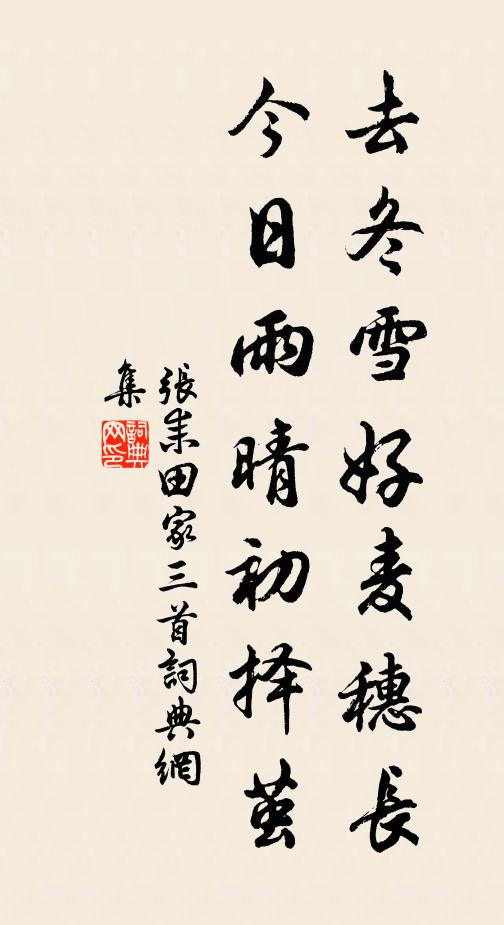 去冬雪好麦穗長
今日雨晴初择茧
張耒田家三首詞典網
集
詞典网印